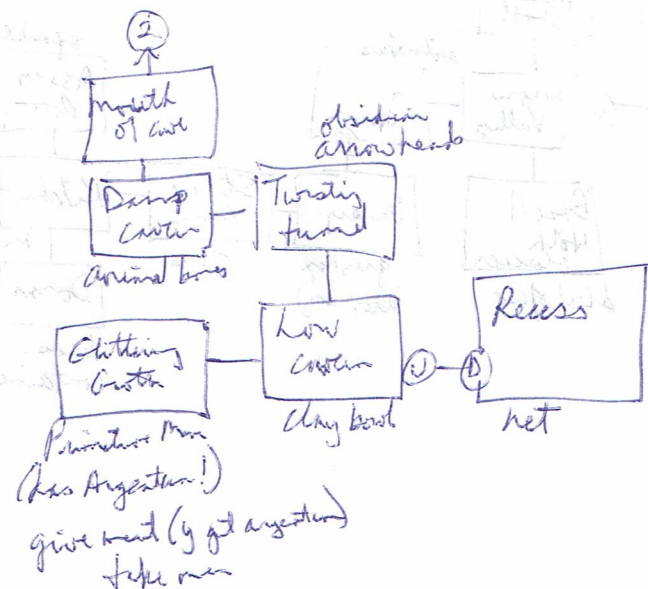 2
mouth
of cave
obsidian
arrowheads
Damp
cavern
Twisting
tunnel
animal bones
Glittering
Grotto
Low
cavern
U
D
Recess
clay bowl
net
Primitive Man
(has Argentum!)
give meat (y get argentum)
take